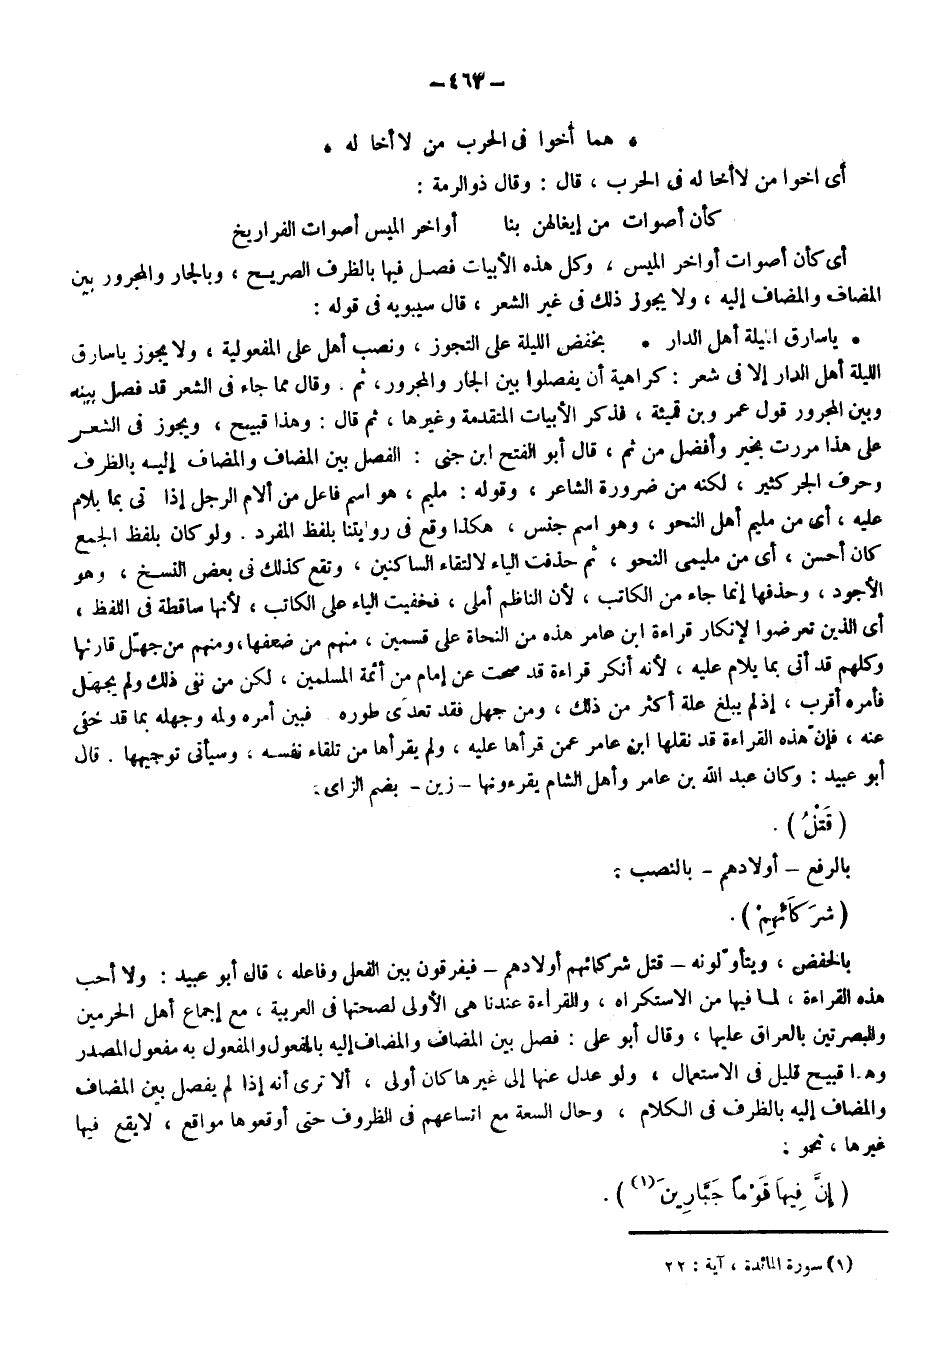 – ٤٦٣ –
* هما أخوا فى الحرب من لا أخا له *
أى اخوا من لا أخا له فى الحرب ، قال : وقال ذو الرمة :
كأن أصوات من إيغالهن بنا أواخر الميس أصوات الفراريخ
أى كأن أصوات أواخر الميس ، وكل هذه الأبيات فصل فيها بالظرف الصريح ، وبالجار والمجرور بين
المضاف والمضاف إليه ، ولا يجوز ذلك فى غير الشعر ، قال سيبويه فى قوله :
* ياسارق الليلة أهل الدار * بخفض الليلة على التجوز ، ونصب أهل على المفعولية ، ولا يجوز ياسارق
الليلة أهل الدار إلا فى شعر : كراهية أن يفصلوا بين الجار والمجرور ، ثم . وقال مما جاء فى الشعر قد فصل بينه
وبين المجرور قول عمر وبن قميئة ، فذكر الأبيات المتقدمة وغيرها ، ثم قال : وهذا قبيح ، ويجوز فى الشعر
على هذا مررت بخير وأفضل من ثم ، قال أبو الفتح ابن جنى : الفصل بين المضاف والمضاف إليه بالظرف
وحرف الجر كثير ، لكنه من ضرورة الشاعر ، وقوله : مليم ، هو اسم فاعل من ألام الرجل إذا تى بما يلام
عليه ، أى من مليم أهل النحو ، وهو اسم جنس ، هكذا وقع فى روايتنا بلفظ المفرد . ولو كان بلفظ الجمع
كان أحسن ، أى من مليمى النحو ، ثم حذفت الياء لالتقاء الساكنين ، وتقع كذلك فى بعض النسخ ، وهو
الأجود ، وحذفها إنما جاء من الكاتب ، لأن الناظم أملى ، فخفيت الياء على الكاتب ، لأنها ساقطة فى اللفظ ،
أى الذين تعرضوا لإنكار قراءة ابن عامر هذه من النحاة على قسمين ، منهم من ضعفها، ومنهم من جهّل قارئها
وكلهم قد أتى بما يلام عليه ، لأنه أنكر قراءة قد صحت عن إمام من أئمة المسلمين ، لكن من نفى ذلك ولم يجهّل
فأمره أقرب ، إذ لم يبلغ علة أكثر من ذلك ، ومن جهل فقد تعدّى طوره فبين أمره ولمه وجهله بما قد خفى
عنه ، فإنّ هذه القراءة قد نقلها ابن عامر عمن قرأها عليه ، ولم يقرأها من تلقاء نفسه ، وسيأتى توجيهها . قال
أبو عبيد : وكان عبد الله بن عامر وأهل الشام يقرءونها – زين – بضم الزاى :
( قَتْلُ ) .
بالرفع – أولادهم – بالنصب :
( شُرَكَائِهِمْ ) .
بالخفض ، ويتأوّلونه – قتل شركائهم أولادهم – فيفرقون بين الفعل وفاعله ، قال أبو عبيد : ولا أحب
هذه القراءة ، لما فيها من الاستكراه ، والقراءة عندنا هى الأولى لصحتها فى العربية ، مع إجماع أهل الحرمين
والبصرتين بالعراق عليها ، وقال أبو على : فصل بين المضاف والمضاف إليه بالمفعول والمفعول به مفعول المصدر
وهذا قبيح قليل فى الاستعمال ، ولو عدل عنها إلى غيرها كان أولى ، ألا ترى أنه إذا لم يفصل بين المضاف
والمضاف إليه بالظرف فى الكلام ، وحال السعة مع اتساعهم فى الظروف حتى أوقعوها مواقع ، لا يقع فيها
غيرها ، نحو :
( إِنَّ فِيهَا قَوْمًا جَبَّارِينَ (١) ) .
(١) سورة المائدة ، آية : ٢٢